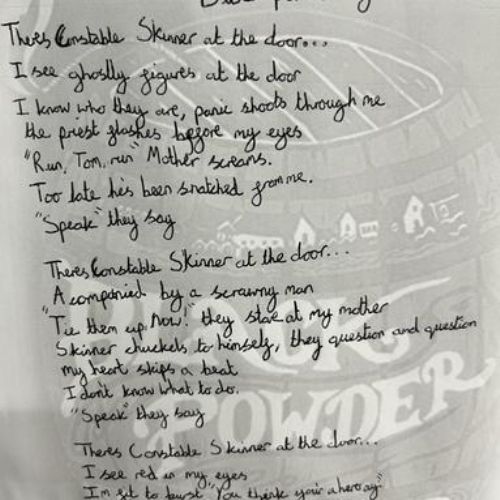 Theres Constable Skinner at the door...
I see ghostly figures at the door
I know who they are, panic shoots through me
the priest flashes before my eyes
"Run, Tom, run" Mother screams.
Too late he's been snatched from me.
"Speak" they say
Theres Constable Skinner at the door...
Acompanied by a scrawny man
"Tie them up. Now!" they stare at my mother
Skinner chuckels to himself, they question and question
my heart skips a beat
I don't know what to do.
"Speak" they say
Theres Constable Skinner at the door...
I see red in my eyes
I'm fit to burst "You think your a hero ay"
BLACK
POWDER